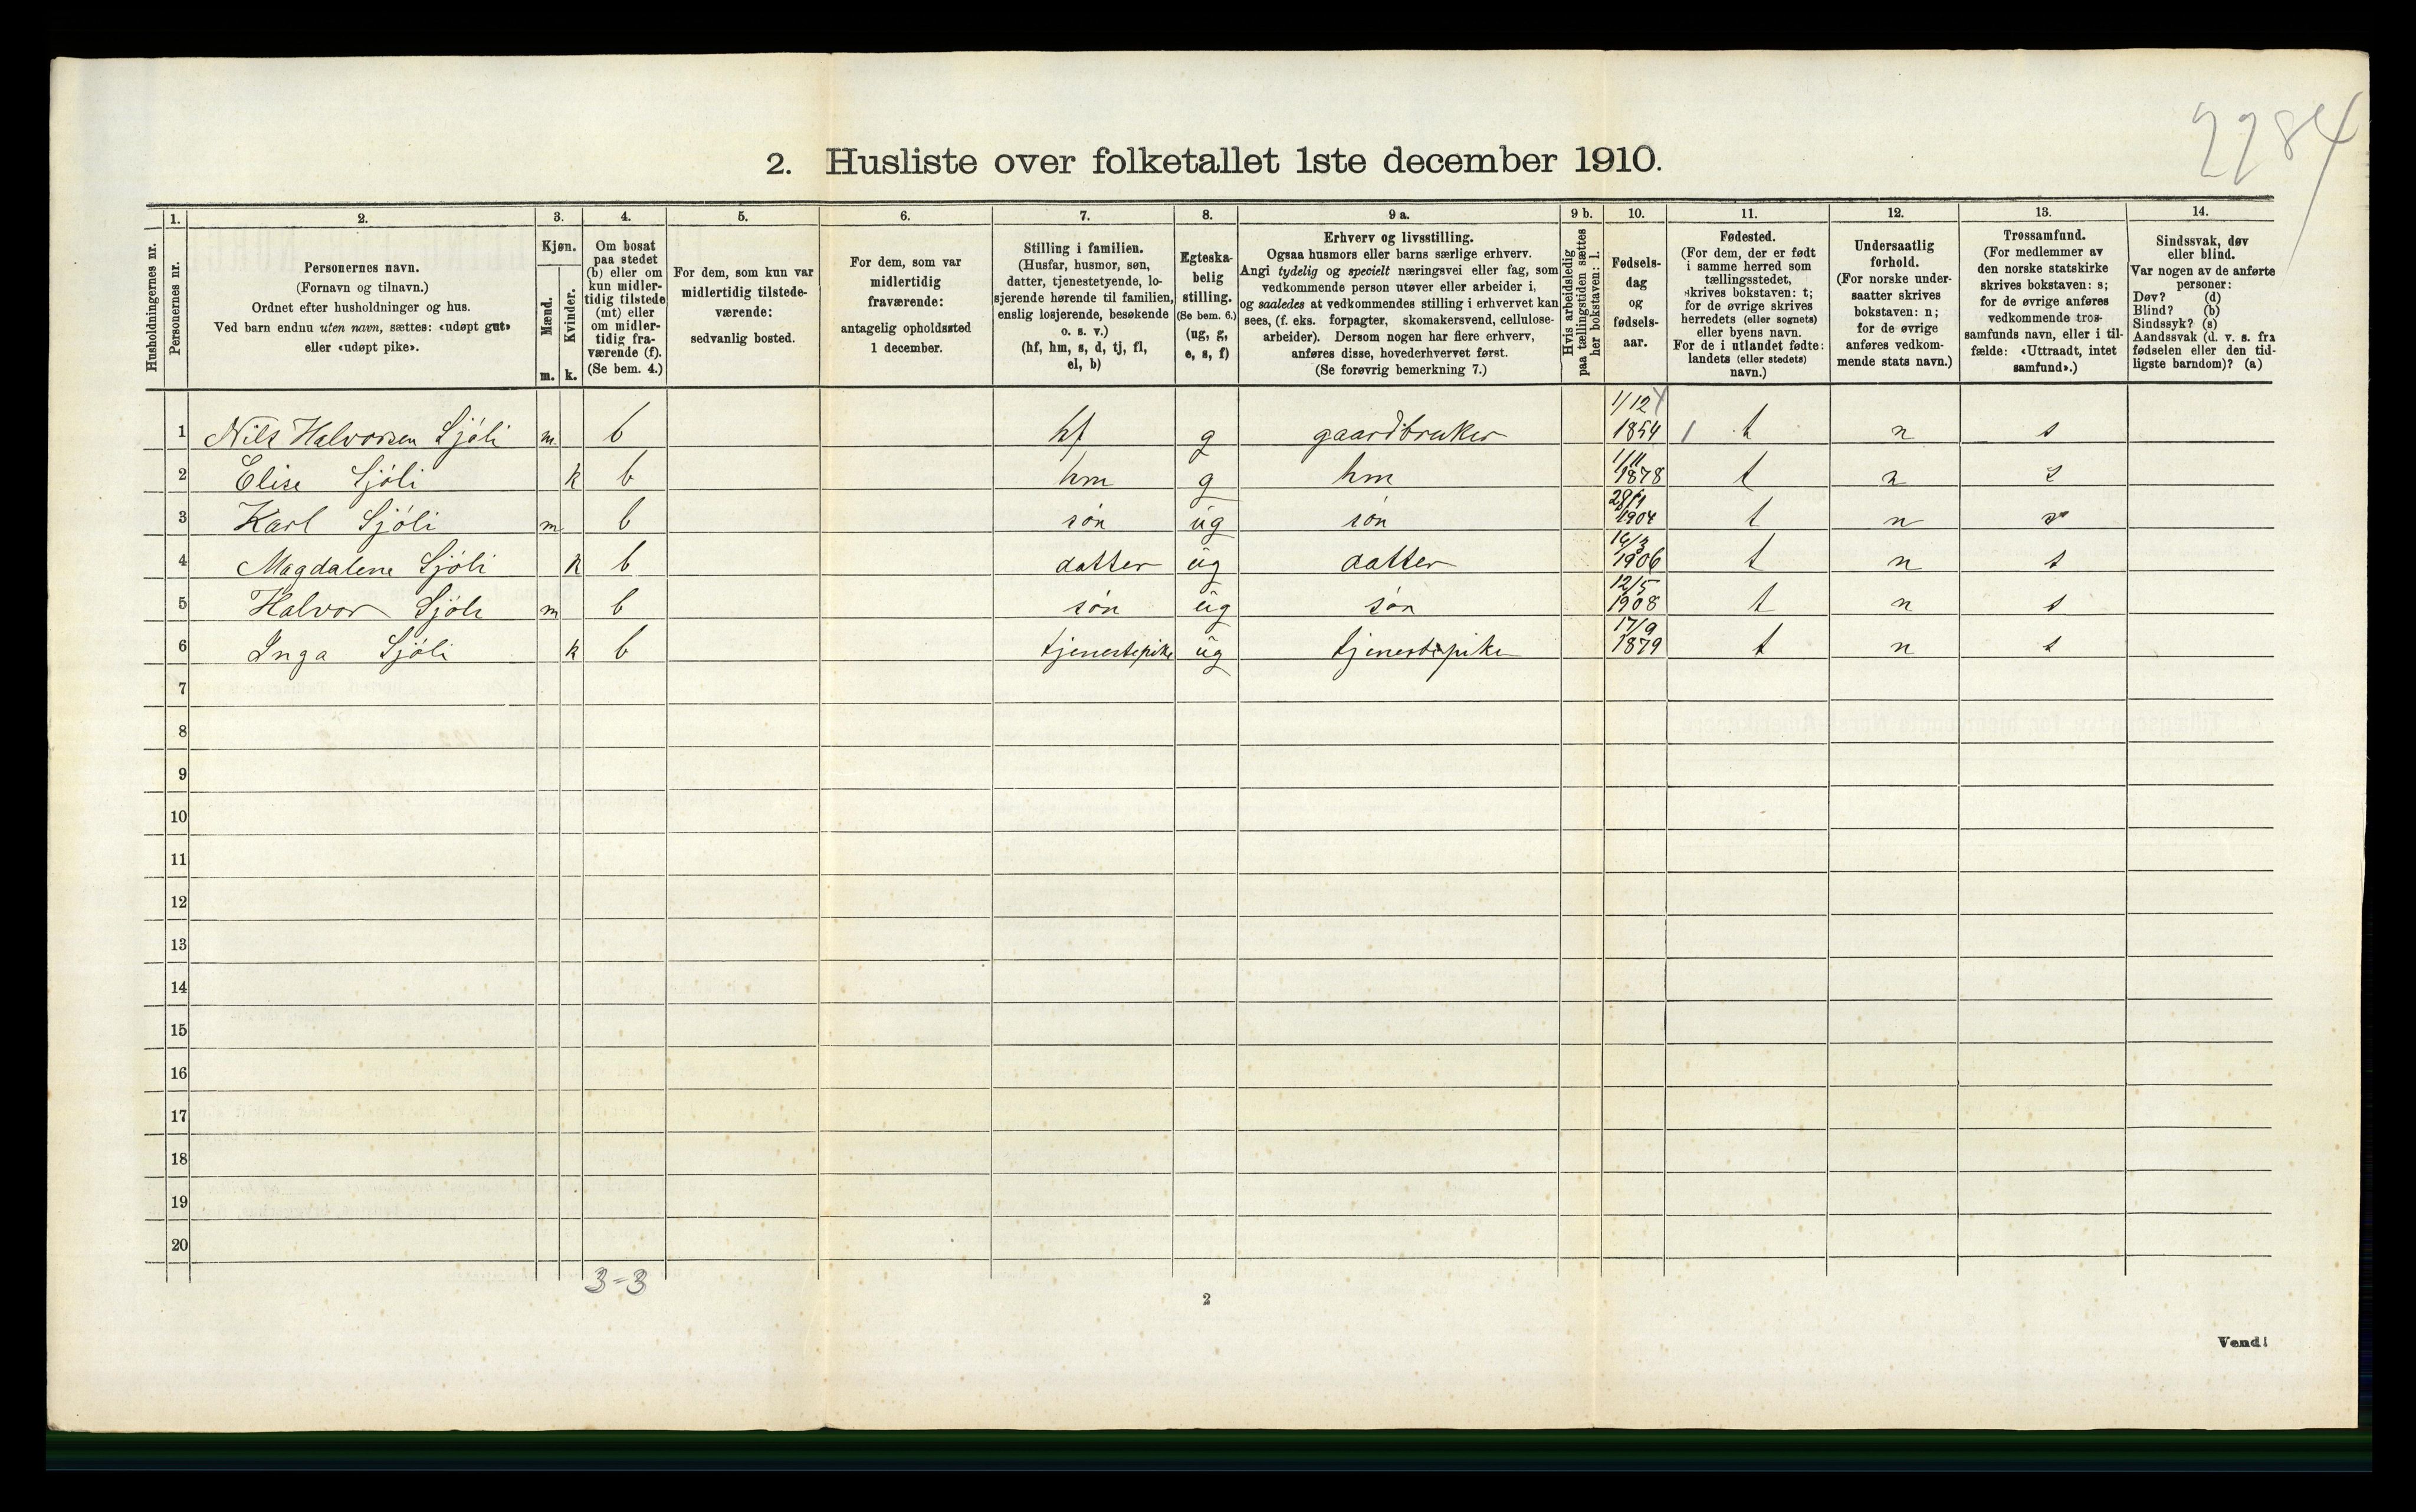 2284
2. Husliste over folketallet 1ste december 1910.
Husholdningernes nr.
1. Personernes nr.
2. Personernes navn.
(Fornavn og tilnavn.)
Ordnet efter husholdninger og hus.
Ved barn endnu uten navn, sættes: «udøpt gut»
eller «udøpt pike».
3. Kjøn.
Mænd. m.
Kvinder. k.
4. Om bosat
paa stedet
(b) eller om
kun midler-
tidig tilstede
(mt) eller
om midler-
tidig fra-
værende (f).
(Se bem. 4.)
5. For dem, som kun var
midlertidig tilstede-
værende:
sedvanlig bosted.
6. For dem, som var
midlertidig
fraværende:
antagelig opholdssted
1 december.
7. Stilling i familien.
(Husfar, husmor, søn,
datter, tjenestetyende, lo-
sjerende hørende til familien,
enslig losjerende, besøkende
o. s. v.)
(hf, hm, s, d, tj, fl,
el, b)
8. Egteska-
belig
stilling.
(Se bem. 6.)
(ug, g,
e, s, f)
9 a. Erhverv og livsstilling.
Ogsaa husmors eller barns særlige erhverv.
Angi tydelig og specielt næringsvei eller fag, som
vedkommende person utøver eller arbeider i,
og saaledes at vedkommendes stilling i erhvervet kan
sees, (f. eks. forpagter, skomakersvend, cellulose-
arbeider). Dersom nogen har flere erhverv,
anføres disse, hovederhvervet først.
(Se forøvrig bemerkning 7.)
9 b. Hvis arbeidsledig
paa tællingstiden sættes
her bokstaven: l.
10. Fødsels-
dag
og
fødsels-
aar.
11. Fødested.
(For dem, der er født
i samme herred som
tællingsstedet,
skrives bokstaven: t;
for de øvrige skrives
herredets (eller sognets)
eller byens navn.
For de i utlandet fødte:
landets (eller stedets)
navn.)
12. Undersaatlig
forhold.
(For norske under-
saatter skrives
bokstaven: n;
for de øvrige
anføres vedkom-
mende stats navn.)
13. Trossamfund.
(For medlemmer av
den norske statskirke
skrives bokstaven: s;
for de øvrige anføres
vedkommende tros-
samfunds navn, eller i til-
fælde: «Uttraadt, intet
samfund».)
14. Sindssvak, døv
eller blind.
Var nogen av de anførte
personer:
Døv? (d)
Blind? (b)
Sindssyk? (s)
Aandssvak (d. v. s. fra
fødselen eller den tid-
ligste barndom)? (a)
1 Nils Halvorsen Sjöli m. b hf g gaardbruker 1/12 1854 t n s
2 Elise Sjöli k b hm g hm 1/11 1878 t n s
3 Karl Sjöli m b sön ug sön 1904 t n s
4 Magdalene Sjöli k b datter ug datter 1906 t n s
5 Halvor Sjöli m b sön ug sön 12/5 1908 t n s
6 Inga Sjöli k b tjenestepike ug tjenestepike 17/9 1879 t n s
7
8
9
10
11
12
13
14
15
16
17
18
19
20
3-3
2
Vend!